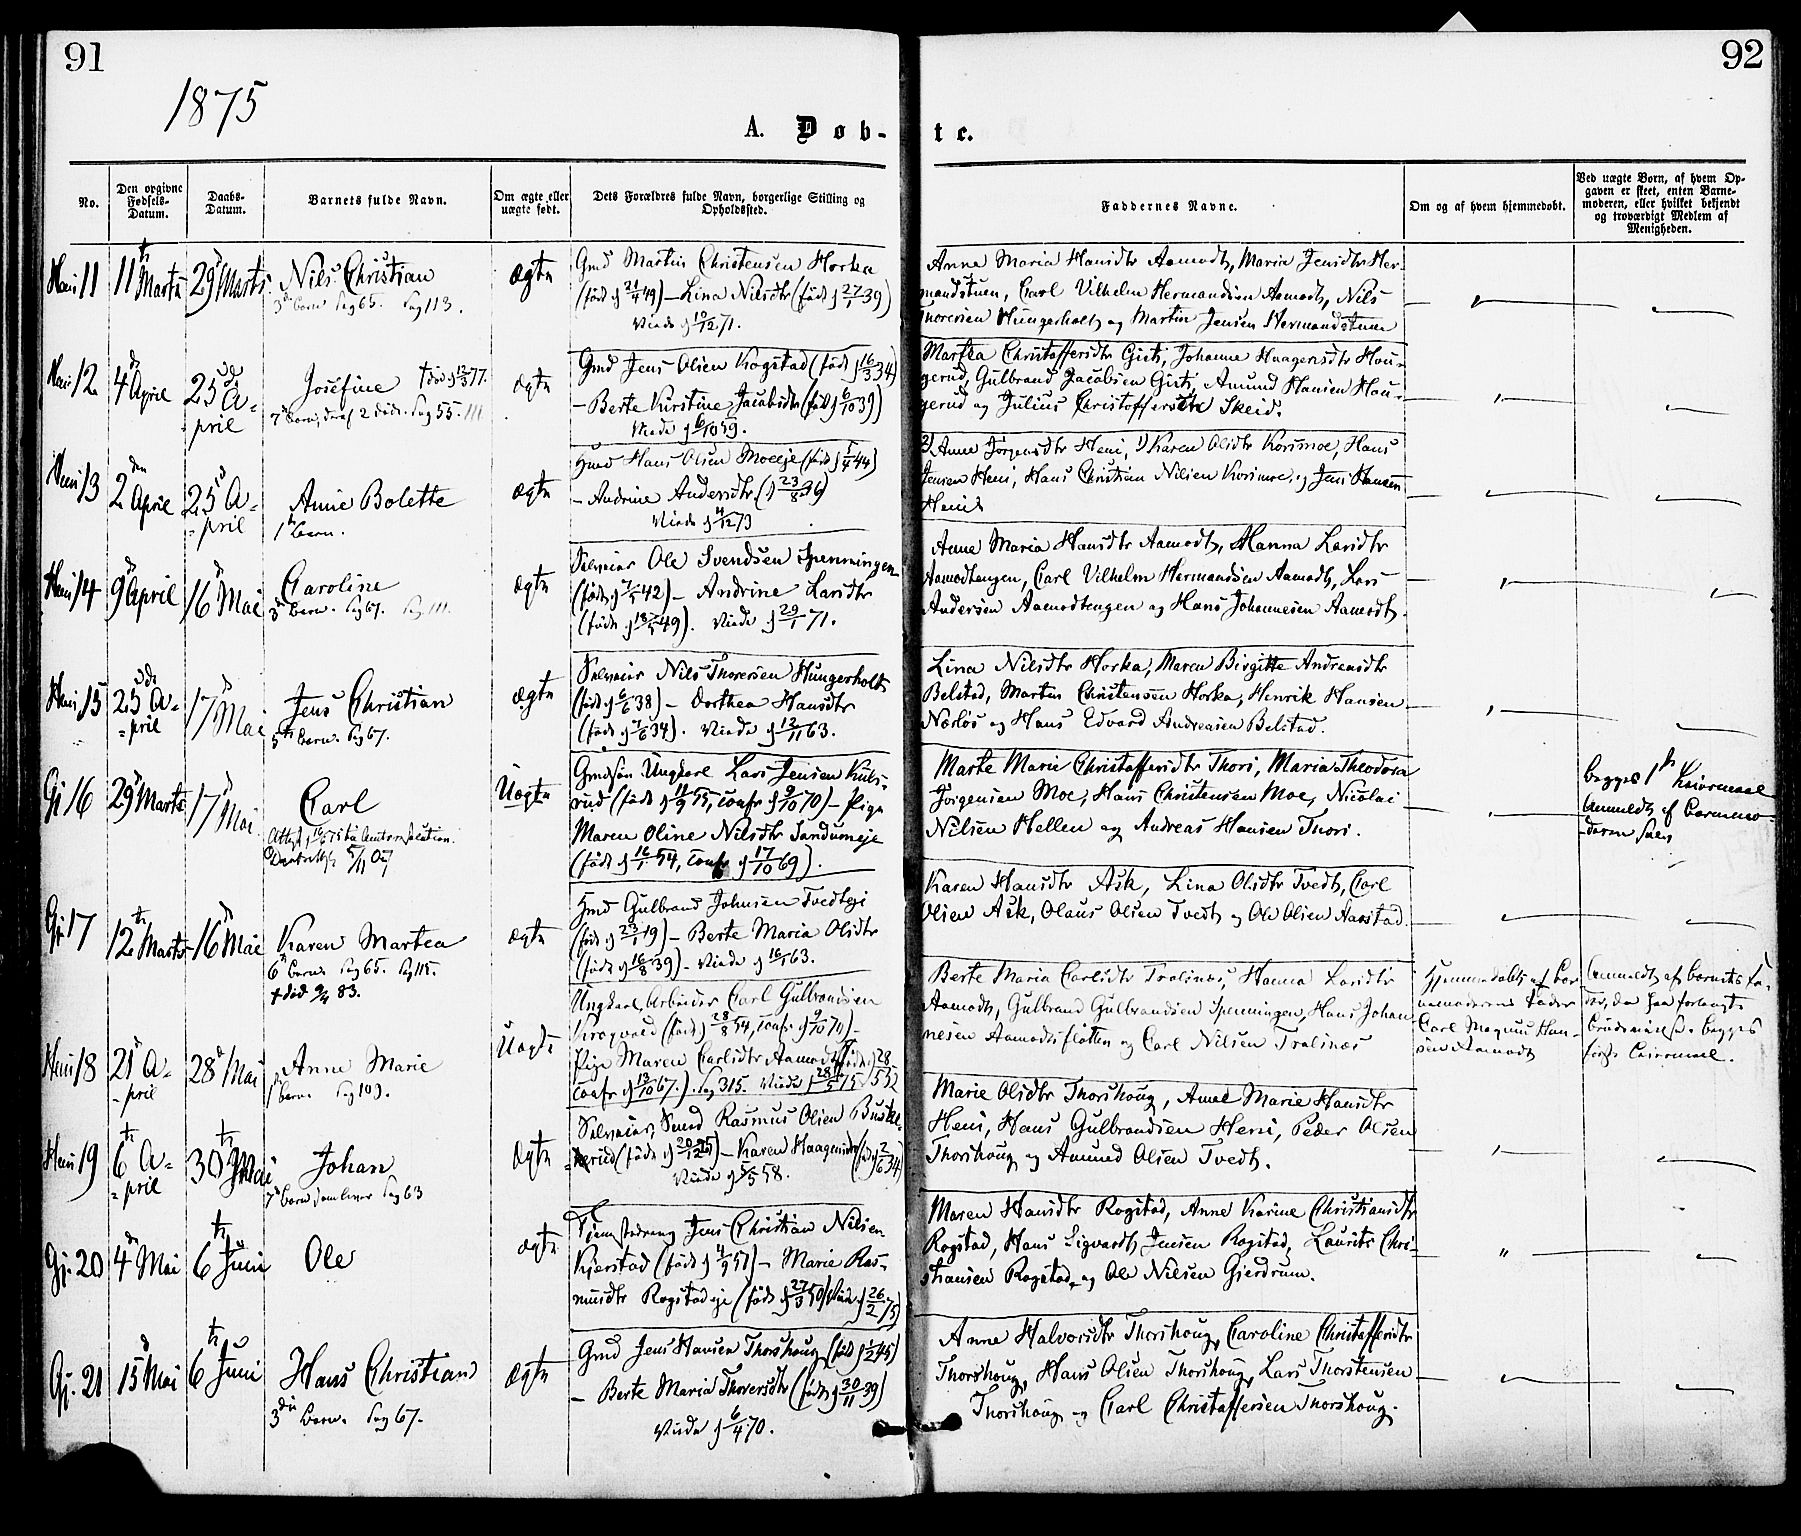 91
92
1875
A. Døb-
te.
No.
Den opgivne
Fødsels-
Datum.
Daabs-
Datum.
Barnets fulde Navn.
Om ægte eller
uægte født.
Dets Forældres fulde Navn, borgerlige Stilling og
Opholdssted.
Faddernes Navne.
Om og af hvem hjemmedøbt.
Ved uægte Børn, af hvem Op-
gaven er skeet, enten Barne-
moderen, eller hvilket bekjendt
og troværdigt Medlem af
Menigheden.
11
11te Marts
29 Marts
Nils Christian
3de Barn. Pag 65. Pag 113.
ægte
Gmd Martin Christensen Horka
(født 21/4 49) – Lina Nilsdtr (født 27/1 39)
Viede 10/12 71.
Anna Maria Hansdtr Aamodt, Maria Jensdtr Her-
mandstuen, Carl Vilhelm Hermandsen Aamodt, Nils
Thoresen Hungerholt og Martin Jensen Hermandstuen
12
4de April
25de A-
pril
Josefine † død 12/3 77.
7de Barn, deraf 2 døde. Pag 55. 111
ægte
Gmd Jens Olsen Kogstad (født 16/3 34)
– Berte Kirstine Jacobsdtr (født 6/10 39)
Viede 6/10 59.
Martea Christoffersdtr Gist, Johanne Haagensdtr Hau-
gerud, Gulbrand Jacobsen Gist, Amund Hansen Hau-
gerud og Julius Christoffersen Skeid.
13
2den April
25de A-
pril
Anne Bolette
1ste Barn.
ægte
Hans Olsen Moeeje (født 5/4 44)
– Andrine Andersdtr (23/8 36)
Viede 4/12 73
2) Anne Jørgensdtr Heni, 1) Karen Olsdtr Korsmoe, Hans
Jensen Heni, Hans Christian Nilsen Korsmoe og Jens Hansen
Heni
14
9de April
16de Mai
Caroline
3de Barn. Pag 67. Pag 111.
ægte
Selveier Ole Svendsen Spenningen
(født 7/5 42) – Andrine Larsdtr
(født 18/5 49). Viede 29/1 71.
Anne Maria Hansdtr Aamodt, Hanna Larsdtr
Aamodtengen, Carl Vilhelm Hermandsen Aamodt, Lars
Andersen Aamodtengen og Hans Johannesen Aamodt.
15
25de A-
pril
17de Mai
Jens Christian
5te Barn. Pag 67.
ægte
Selveier Nils Thoresen Hungerholt
(født 6/6 38) – Dorthea Hansdtr
(født 7/6 34). Viede 12/11 63.
Lina Nilsdtr Horka, Maren Birgitte Andreasdtr
Belstad, Martin Christensen Horka, Henrik Hansen
Nordlos og Hans Edvard Andreasen Belstad.
Gj 16
29de Marts
17de Mai
Carl
Uægte
Gmdsøn Ungkarl Lars Jensen Kuls-
rud (født 11/9 55, Conf. 9/10 70) – Pige
Maren Oline Nilsdtr Sandumeje
(født 16/1 54, Conf. 17/10 69).
Marte Marie Christoffersdtr Thori, Maria Theodora
Jørgensen Moe, Hans Christensen Moe, Nicolai
Nilsen Hellen og Andreas Hansen Thori.
begges 1ste Leiermaal
Anmeldt af Barnemo-
deren selv
Gj. 17
12te Marts
16de Mai
Karen Martea
6te Barn. Pag 65. Pag 115.
† død 9/4 83.
ægte
Gulbrand Johnsen Tvedteje
(født 23/1 19) – Berte Maria Olsdtr
(født 16/8 39) – Viede 16/1 63.
Karen Hansdtr Ask, Lina Olsdtr Tvedt, Carl
Olsen Ask, Olaus Olsen Tvedt og Ole Olsen Aarstad.
18
21de A-
pril
28de Mai
Anne Marie
1ste Barn. Pag 109.
Uægte
Ungkarl, Arbeider Carl Gulbrandsen
Krogvold (født 28/8 54, Conf. 9/10 70) –
Pige Maren Carlsdtr Aamodt (født 28/5 52
Conf. 13/10 67). Pag 315. Viede 28/5 75
Berte Maria Carlsdtr Tralsnæs, Hanna Larsdtr
Aamodt, Gulbrand Gulbrandsen Spenningen, Hans Johan
nesen Aamodtsflotten og Carl Nilsen Tralsnæs
Hjemmedøbt af Bar
nemoderens Fader
Carl Magnus Han-
sen Aamodt
Anmeldt af Barnets Fa-
der, der har forlangt
Brudevielse. Begges
første Leiermaal.
19
6te A-
pril
30te Mai
Johan
7de Barn som lever Pag 63
Ægte
Selveier, Smed Rasmus Olsen Buske-
rud (født 20/12 25) – Karen Haagensdtr (født 2/6 34)
Viede 58.
Marie Olsdtr Thorshoug, Anne Marie Hansdtr
Heni, Hans Gulbrandsen Heni, Peder Olsen
Thorshoug og Amund Olsen Tvedt.
Gj. 20
4de Mai
6te Juni
Ole
ægte
Tjenestedreng Jens Christian Nilsen
Kjærstad (født 4/9 51) – Marie Ras-
musdtr Rogstadeje (født 27/3 50) Viede 26/2 75)
Maren Hansdtr Rogstad, Anne Karine Christiansdtr
Rogstad, Hans Sigvardt Jensen Rogstad, Laurits Chri-
stiansen Rogstad og Ole Nilsen Gjerdrum.
Gj. 21
15de Mai
6te Juni
Hans Christian
3die Barn. Pag 67.
Ægte
Gmd Jens Hansen Thorshoug (født 1/2 45)
– Berte Maria Thoresdtr (født 30/11 39)
Viede 6/4 70.
Anne Halvorsdtr Thorshoug, Caroline Christoffersdtr
Thorshoug, Hans Olsen Thorshoug, Lars Thorstensen
Thorshoug og Carl Christoffersen Thorshoug.